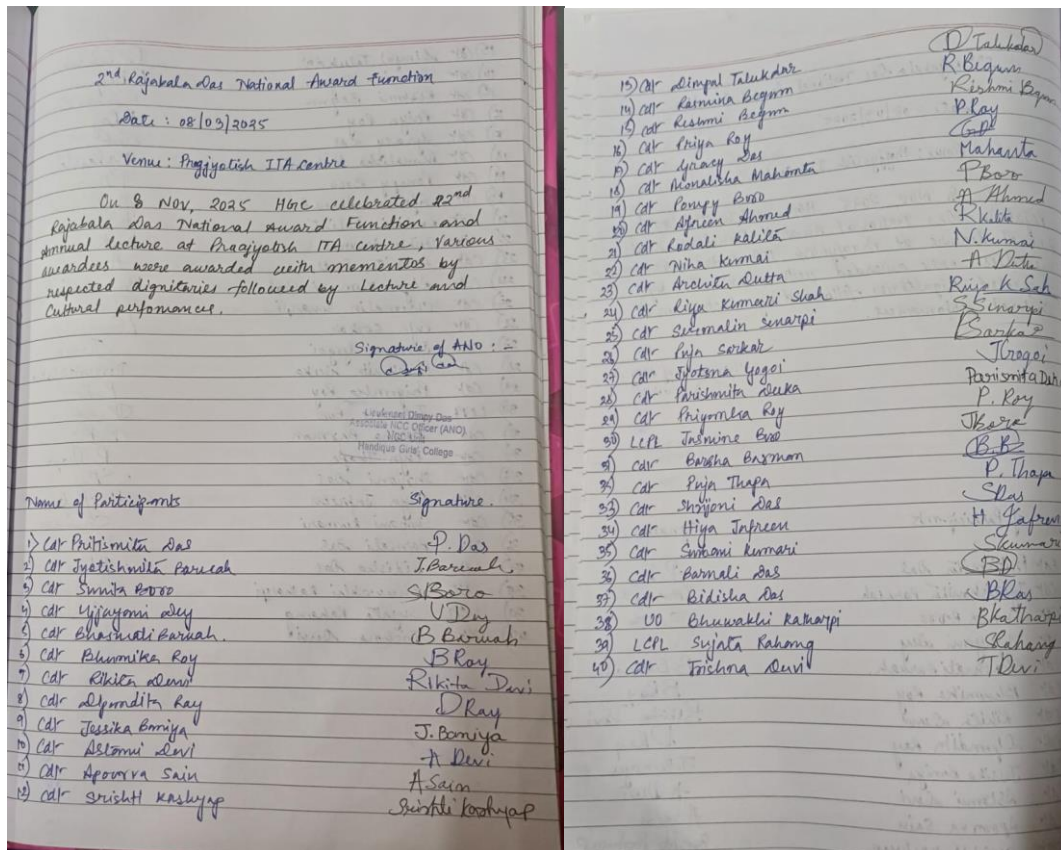 2nd Rajabala Das National Award Function
Date : 08/03/2025
Venue : Pragjyotish ITA Centre
On 8 Nov, 2025 HGC celebrated 22nd
Rajabala Das National Award Function and
Annual lecture at Praagjyotish ITA centre, various
awardees were awarded with mementos by
respected dignitaries followed by Lecture and
Cultural perfomances.
Signature of ANO : -
Lieutenant Dimpy Das
Associate NCC Officer (ANO)
Handique Girls' College
Name of Participants Signature.
1) Cdt Pritismita Das P. Das
2) Cdt Jyotishmita Baruah J. Baruah
3) Cdt Sunita Boro S Boro
4) Cdt Ujjayoni Dey U Dey
5) Cdt Bhasmali Baruah. B Baruah
6) Cdt Bhumika Roy B Roy
7) Cdt Rikita Devi Rikita Devi
8) Cdt Ray D Ray
9) Cdt Jessika Bamiya J. Bamiya
10) Cdt Astomi Devi A Devi
11) Cdt Apourva Sain A Sain
12) Cdt Srishti Kashyap Srishti Kashyap
13) Cdt Dimpal Talukdar D Talukdar
14) Cdt Rasmina Begum R. Begum
15) Cdt Reshmi Begum Reshmi Begum
16) Cdt Priya Roy P. Roy
17) Cdt Gracy Das GD
18) Cdt Monalisha Mahanta Mahanta
19) Cdt Pompy Boro P Boro
20) Cdt Afreen Ahmed A Ahmed
21) Cdt Rodali Kalita R Kalita
22) Cdt Niha Kumai N. Kumai
23) Cdt Archita Dutta A Dutta
24) Cdt Riya Kumari Shah Riya K Sah
25) Cdt Sinarpi S Sinarpi
26) Cdt Puja Sarkar Sarkar
27) Cdt Jyotsna Gogoi J Gogoi
28) Cdt Parishmita Deka Parismita Deka
29) Cdt Priyomkha Roy P. Roy
30) LCPL Jasmine Boro J Boro
31) Cdt Barsha Barman B.B
32) Cdt Puja Thapa P. Thapa
33) Cdt Das S Das
34) Cdt Hiya Jafreen H Jafreen
35) Cdt Kumari S kumari
36) Cdt Barnali Das BD
37) Cdt Bidisha Das B Das
38) UO Bhuwakhi Katharpi B Katharpi
39) LCPL Sujata Rahang S Rahang
40) Cdt Trishna Devi T Devi